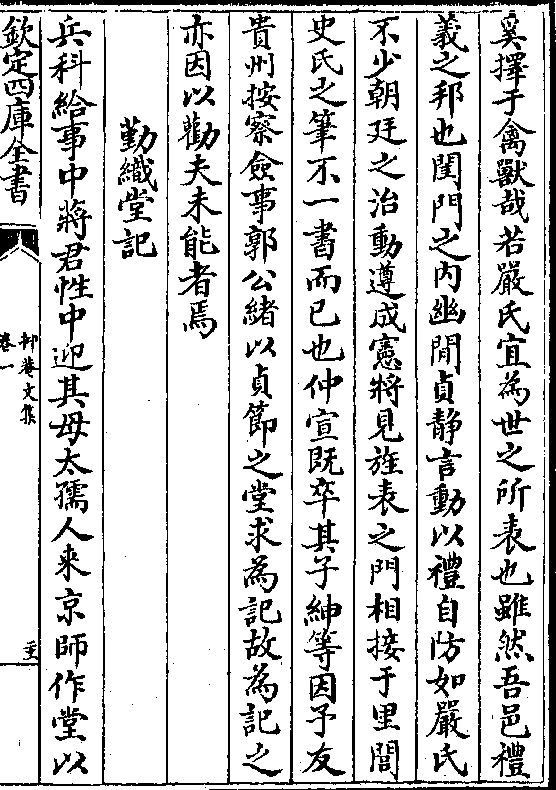 奚擇于禽獸哉若嚴氏宜為世之所表也雖然吾邑禮
義之邦也閨門之内幽閒貞静言動以禮自防如嚴氏
不少朝廷之治動遵成憲將見旌表之門相接于里閭
史氏之筆不一書而已也仲宣既卒其子紳等因予友
貴州按察僉事郭公緒以貞節之堂求為記故為記之
亦因以勸夫未能者焉
勤織堂記
兵科給事中蔣君性中迎其母太孺人来京師作堂以
欽定四庫全書
抑菴文集
卷一